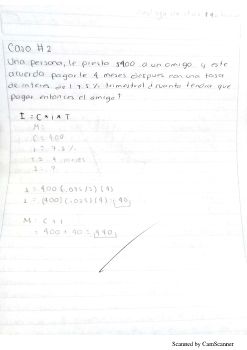 Caso #2
Una persona, le presto $400 a un amigo y este
acuerda pagarle 4 meses despues con una tasa
de interes del 7.5% trimestral ¿cuanto tendra que
pagar entonces el amigo?
I = C * i * T
M=
C = 400
i = 7.5%
T = 4 meses
I = ?
I = 400 (.075/3) (4)
I = (400) (.025) (4) = 40
M = C + I
= 400 + 40 = 440
Scanned by CamScanner